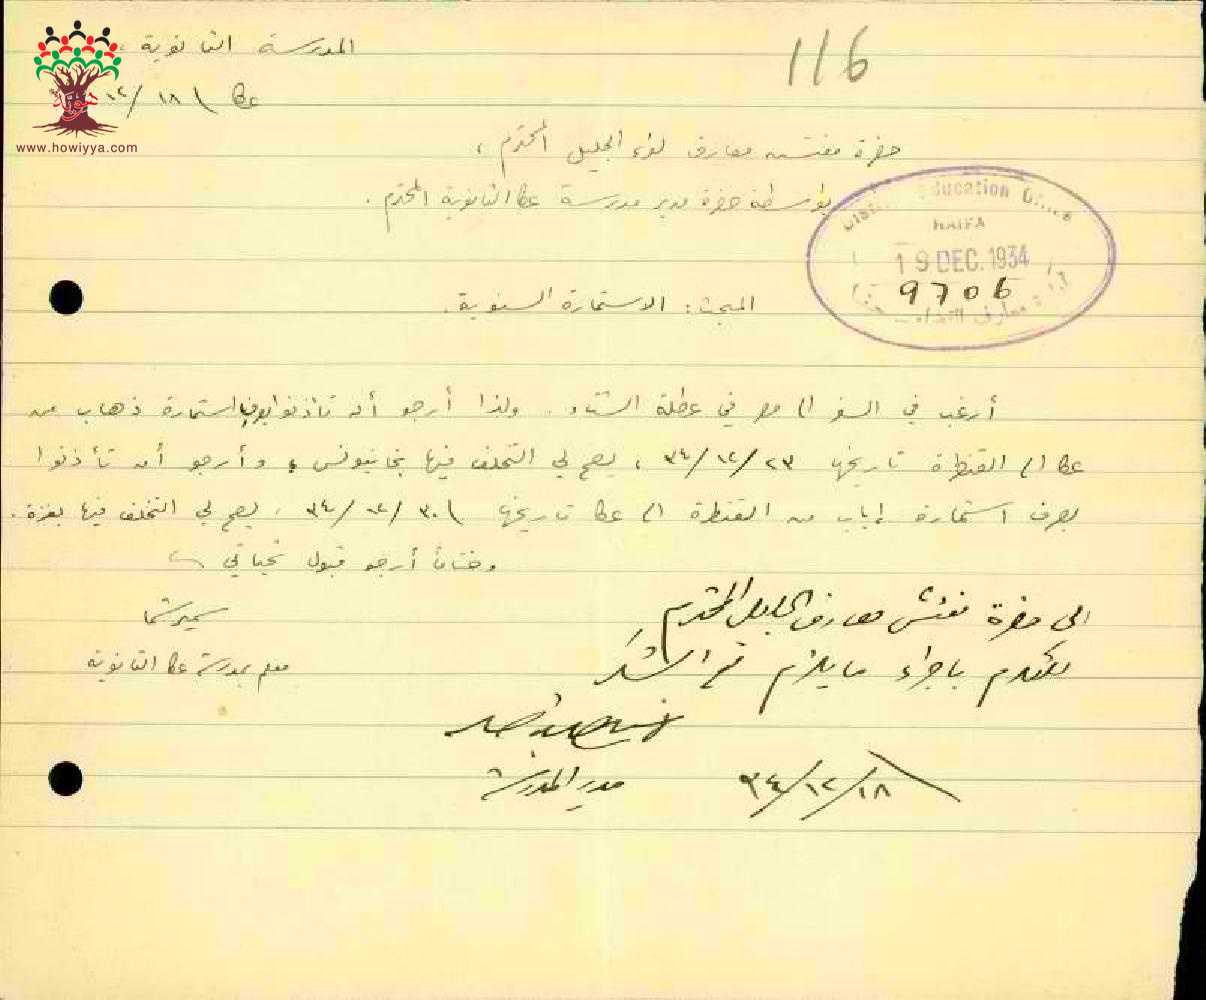 116
المدرسة الثانوية،
عكا ١٨/١٢
www.howiyya.com
حضرة مفتش معارف لواء الجليل المحترم،
بواسطة حضرة مدير مدرسة عكا الثانوية المحترم.
District Education Office
HAIFA
19 DEC. 1934
9706
المبحث: الاستمارة السنوية.
أرغب في السفر الى مصر في عطلة الشتاء. ولذا أرجو أن تأذنوا استمارة ذهاب من
عكا الى القنطرة تاريخها ٢٣/١٢/٣٤، يصح لي التخلف فيها بخانيونس، وأرجو أن تأذنوا
بصرف استمارة إياب من القنطرة الى عكا تاريخها ٣٠/١٢/٣٤، يصح لي التخلف فيها بغزة.
وختاماً أرجو قبول تحياتي
سمير شما
معلم بمدرسة عكا الثانوية
الى حضرة مفتش معارف الجليل المحترم
للتكرم باجراء ما يلزم مع الشكر
مدير المدرسة
١٨/١٢/٣٤